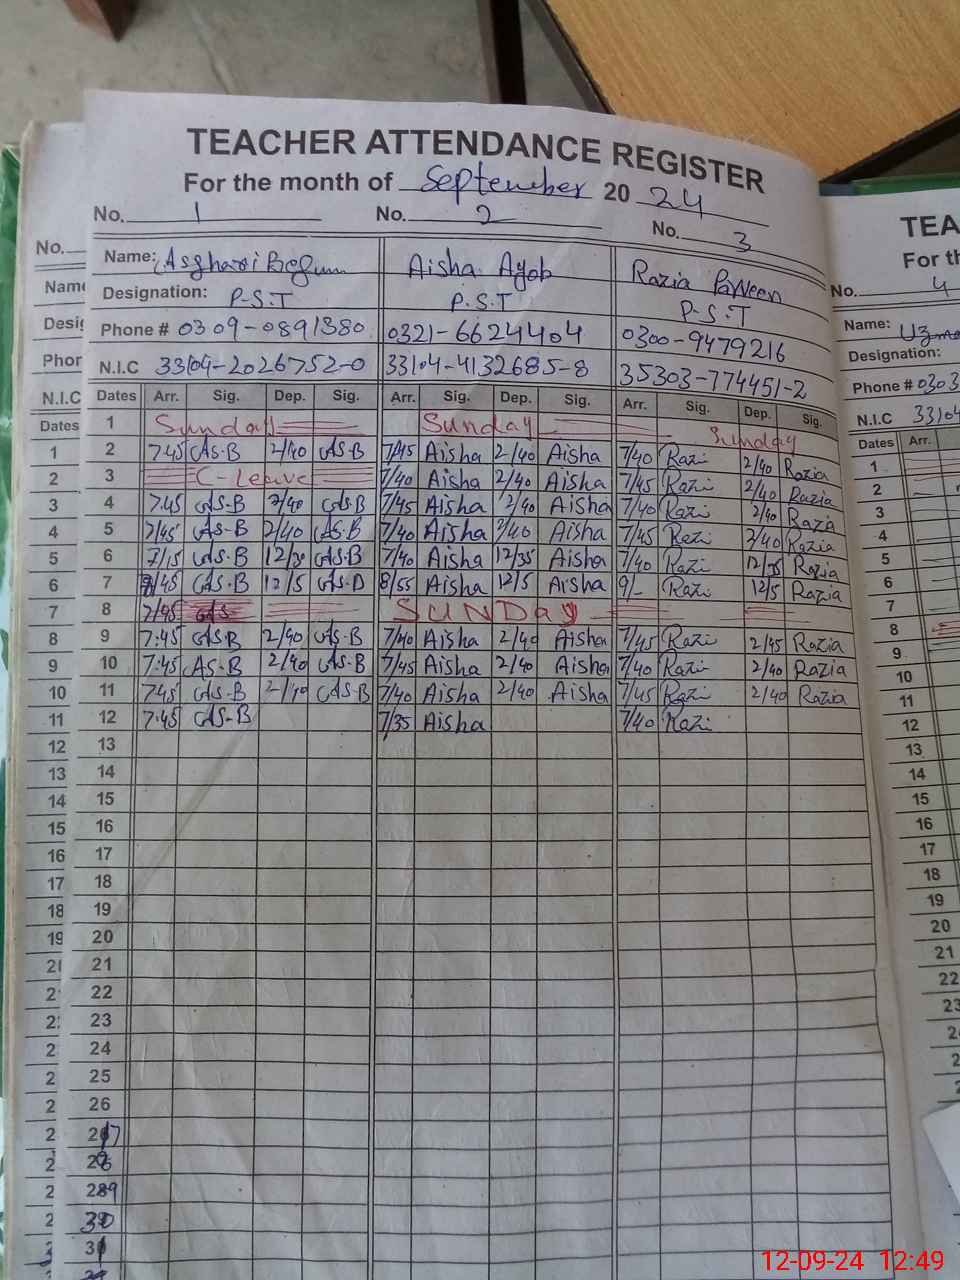 TEACHER ATTENDANCE REGISTER
For the month of September 20 24
No. 1 No. 2 No. 3
Name: Asghari Begum Aisha Ayob Razia Parveen
Designation: P.S.T P.S.T P.S.T
Phone # 0309-0891380 0321-6624404 0300-9479216
N.I.C 33104-2026752-0 33104-4132685-8 35303-774451-2
Dates Arr. Sig. Dep. Sig. Arr. Sig. Dep. Sig. Arr. Sig. Dep. Sig.
1 Sunday Sunday Sunday
2 7:45 AS-B 2/40 AS-B 7/45 Aisha 2/40 Aisha 7/40 Razi 2/40 Razia
3 C-Leave 7/40 Aisha 2/40 Aisha 7/45 Razi 2/40 Razia
4 7:45 AS-B 2/40 AS-B 7/45 Aisha 2/40 Aisha 7/40 Razi 2/40 Razia
5 7/45 AS-B 2/40 AS-B 7/40 Aisha 2/40 Aisha 7/45 Razi 2/40 Razia
6 7/15 AS-B AS-B 7/40 Aisha 12/35 Aisha 7/40 Razi Razia
7 AS-B 12/5 8/55 Aisha 12/5 Aisha 9/- Razi 12/5 Razia
8 7/45 AS SUNDay
9 7:45 AS-B 2/40 AS-B 7/40 Aisha 2/40 Aisha 7/45 Razi 2/45 Razia
10 7:45 AS-B 2/40 AS-B 7/45 Aisha 2/40 Aisha 7/40 Razi 2/40 Razia
11 7:45 AS-B 2/40 AS-B 7/40 Aisha 2/40 Aisha 7/45 Razi 2/40 Razia
12 7:45 AS-B 7/35 Aisha 7/40 Razi
13
14
15
16
17
18
19
20
21
22
23
24
25
26
30
No.
N.I.C
Dates
1
2
3
4
5
6
7
8
9
10
11
12
13
14
15
16
17
18
19
TEA
For th
No. 4
Name:
Designation:
Phone # 0303
N.I.C 33104
Dates Arr.
1
2
3
4
5
6
7
8
9
10
11
12
13
14
15
16
17
18
19
20
21
22
23
12-09-24 12:49